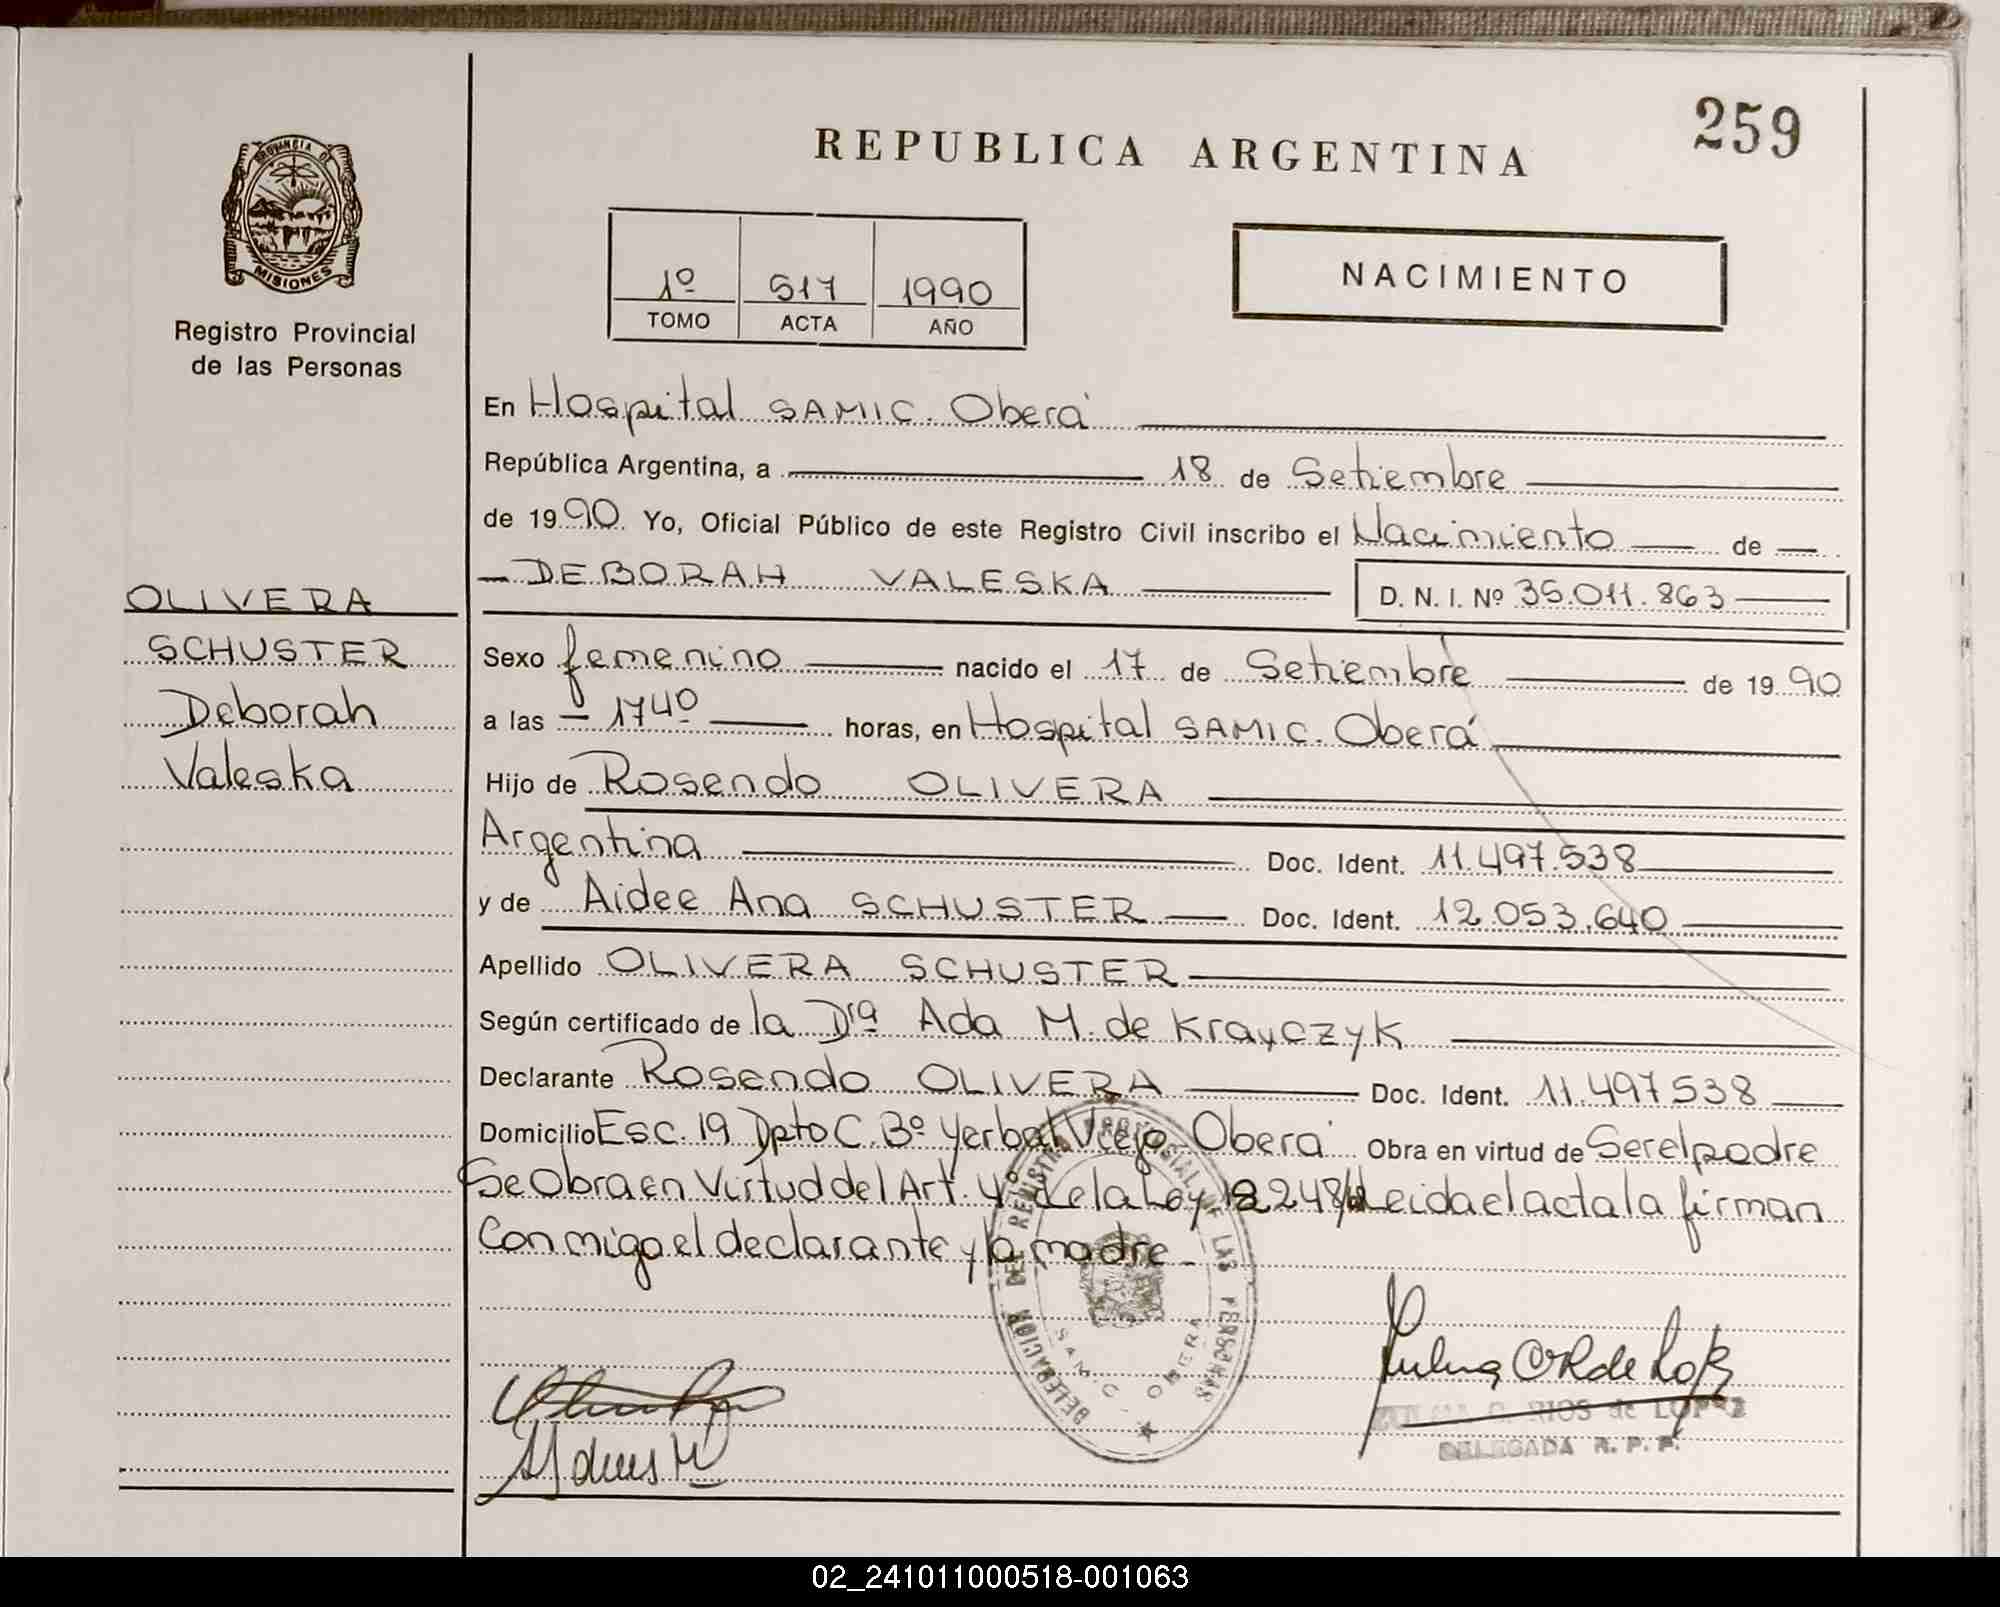 259
REPUBLICA ARGENTINA
PROVINCIA DE
MISIONES
Registro Provincial
de las Personas
1º 517 1990
TOMO ACTA AÑO
NACIMIENTO
En Hospital SAMIC. Oberá
República Argentina, a 18 de Setiembre
de 1990. Yo, Oficial Público de este Registro Civil inscribo el Nacimiento de
DEBORAH VALESKA D. N. I. Nº 35.011.863
OLIVERA
SCHUSTER
Deborah
Valeska
Sexo femenino nacido el 17 de Setiembre de 1990
a las 1740 horas, en Hospital SAMIC. Oberá
Hijo de Rosendo OLIVERA
Argentina Doc. Ident. 11.497.538
y de Aidee Ana SCHUSTER Doc. Ident. 12.053.640
Apellido OLIVERA SCHUSTER
Según certificado de la Dra Ada M. de Krayczyk
Declarante Rosendo OLIVERA Doc. Ident. 11.497538
Domicilio Esc. 19 Dpto C. Bº Yerbal Viejo - Oberá Obra en virtud de Ser el padre
Se Obra en Virtud del Art. 4º de la Ley 18248/ Leida el acta la firman
Conmigo el declarante y la madre -
DELEGACION DEL REGISTRO PROVINCIAL DE LAS PERSONAS
SAMIC - OBERA
RIOS de LOPEZ
DELEGADA R. P. P.
02_241011000518-001063